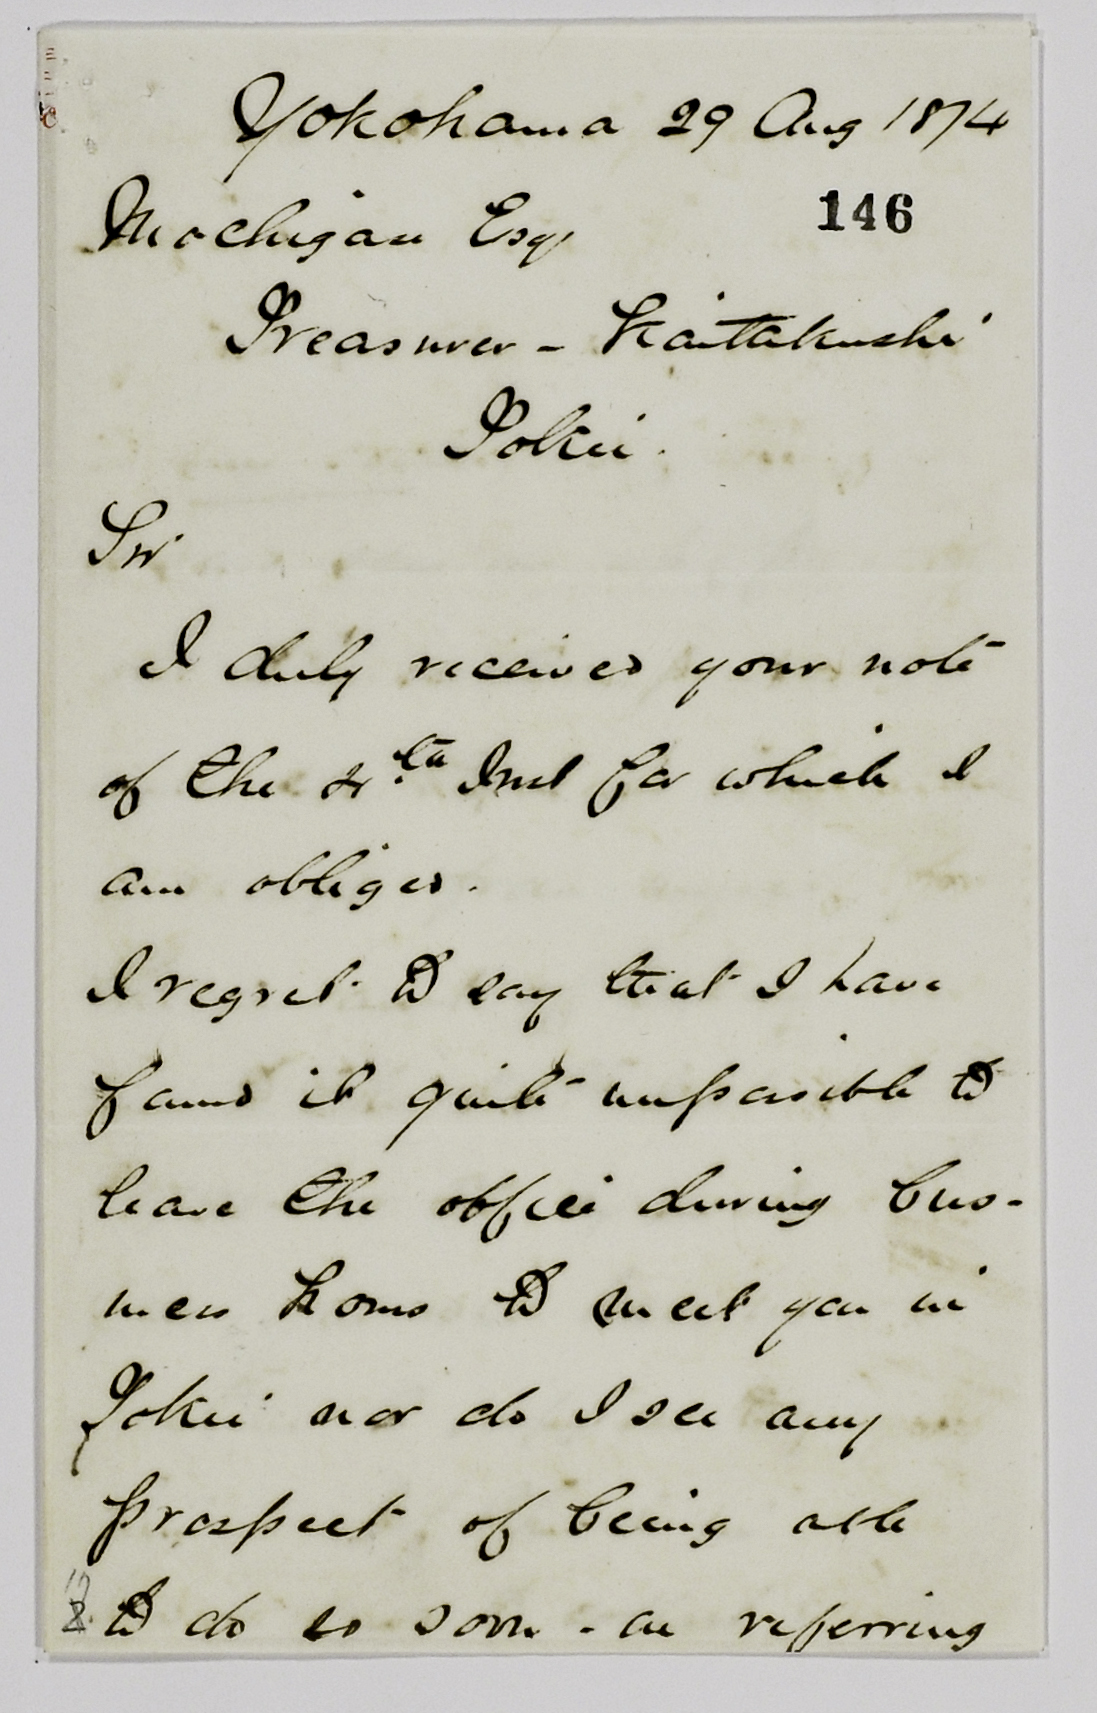 Yokohama 29 Aug 1874
Mochigan Esqr
146
Treasurer - Kaitakushi
Tokei.
Sir
I duly received your note
of the 4th Inst for which I
am obliged.
I regret to say that I have
found it quite impossible to
leave the office during bus-
iness hours to meet you in
Tokei nor do I see any
prospect of being able
to do so soon - on referring